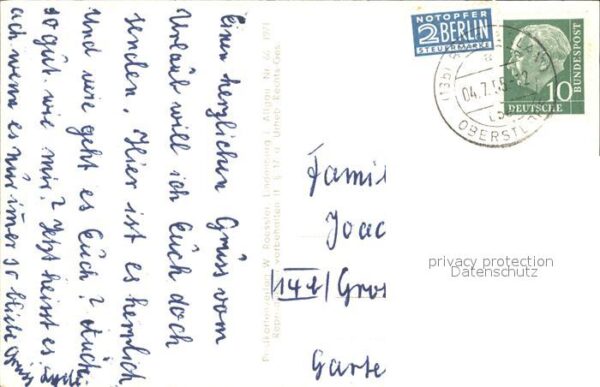 Einen herzlichen Gruss vom
Urlaub will ich Euch doch
senden. Hier ist es herrlich
Und wie geht es Euch? Auch
so gut wie mir? Jetzt heisst es
ach wenn es nur immer so bliebe
Postkartenverlag W. Roessler, Lindenberg i. Allgäu Nr. 62 1971
Reproduktion vorbehalten lt. § 17 d. Urheb. Rechts-Ges.
NOTOPFER
2 BERLIN
STEUERMARKE
DEUTSCHE
BUNDESPOST
10
04.7.
OBERST
Famil
Joac
14b/Gros
Garte
privacy protection
Datenschutz